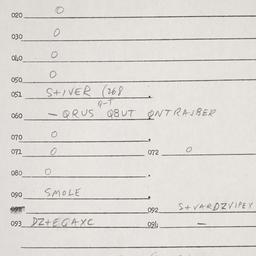 020 0
030 0
040 0
050 0
051 S+IVER (268
9-T
060 - QRUS QBUT QNTRAJBER
070 0
071 0 072 0
080 0
090 SMOLE
092 S+VARDZVIPEY
093 DZ+EGAXC 094 -